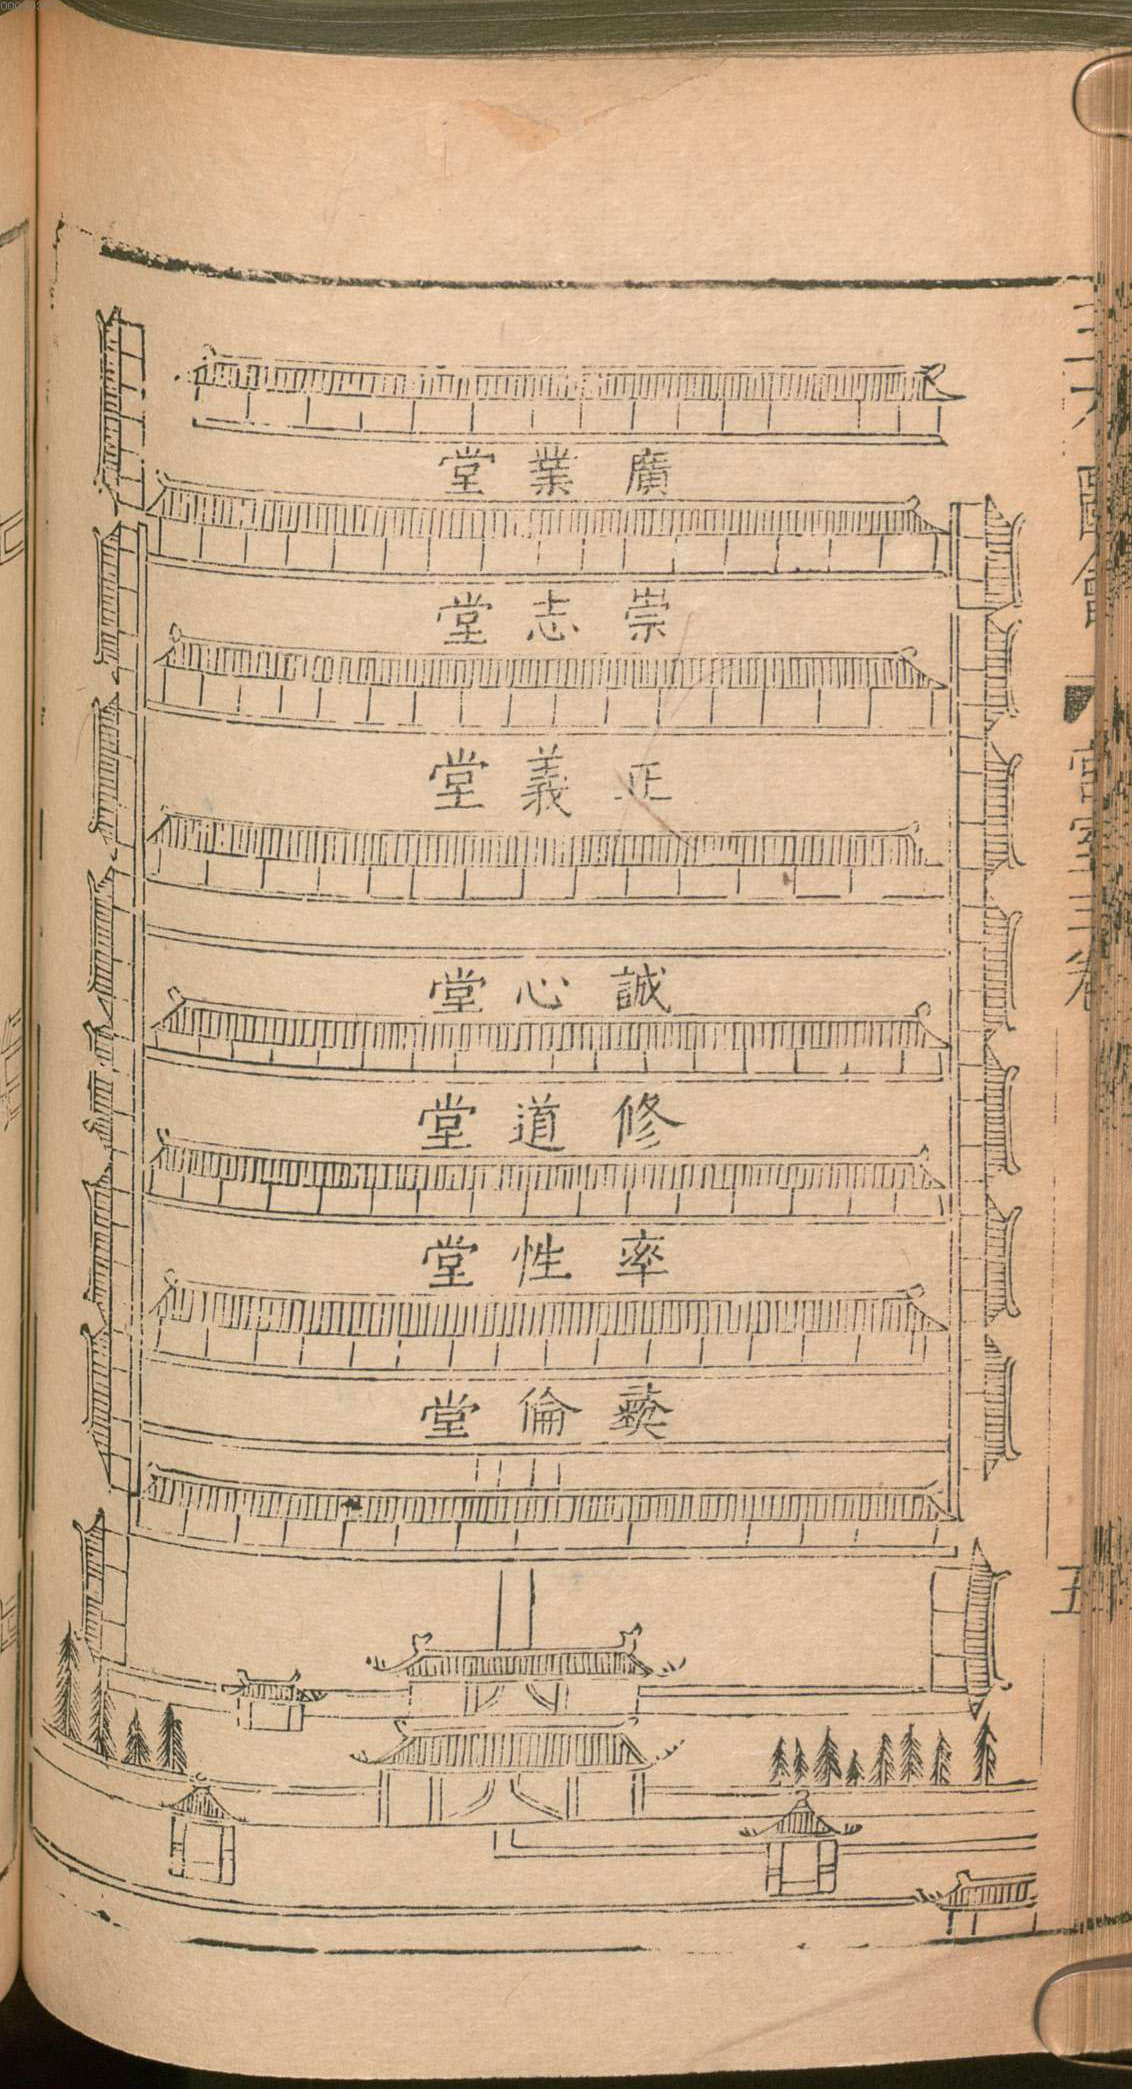 廣業堂
崇志堂
正義堂
誠心堂
修道堂
率性堂
彝倫堂
三才圖會
宮室三卷
五